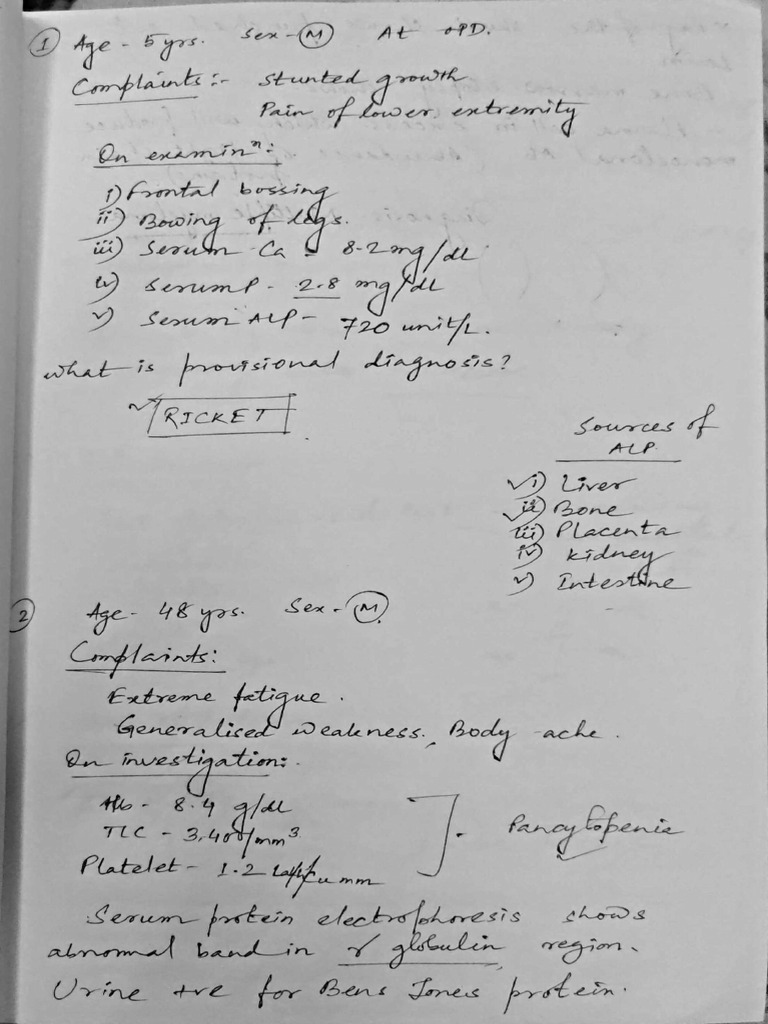 ① Age - 5 yrs. Sex - Ⓜ At OPD.
Complaints :- Stunted growth
Pain of lower extremity
On examinⁿ :
i) Frontal bossing
ii) Bowing of legs.
iii) Serum Ca - 8.2 mg/dL
iv) Serum P - 2.8 mg/dL
v) Serum ALP - 720 unit/L.
What is provisional diagnosis?
RICKET
Sources of
ALP
i) Liver
ii) Bone
iii) Placenta
iv) Kidney
v) Intestine
② Age - 48 yrs. Sex - Ⓜ
Complaints:
Extreme fatigue.
Generalised weakness, Body ache.
On investigation:
Hb - 8.4 g/dl
TLC - 3,400/mm³
Platelet - 1.2 lakh/cu mm
Pancytopenia
Serum protein electrophoresis shows
abnormal band in γ globulin region.
Urine +ve for Bens Jones protein.